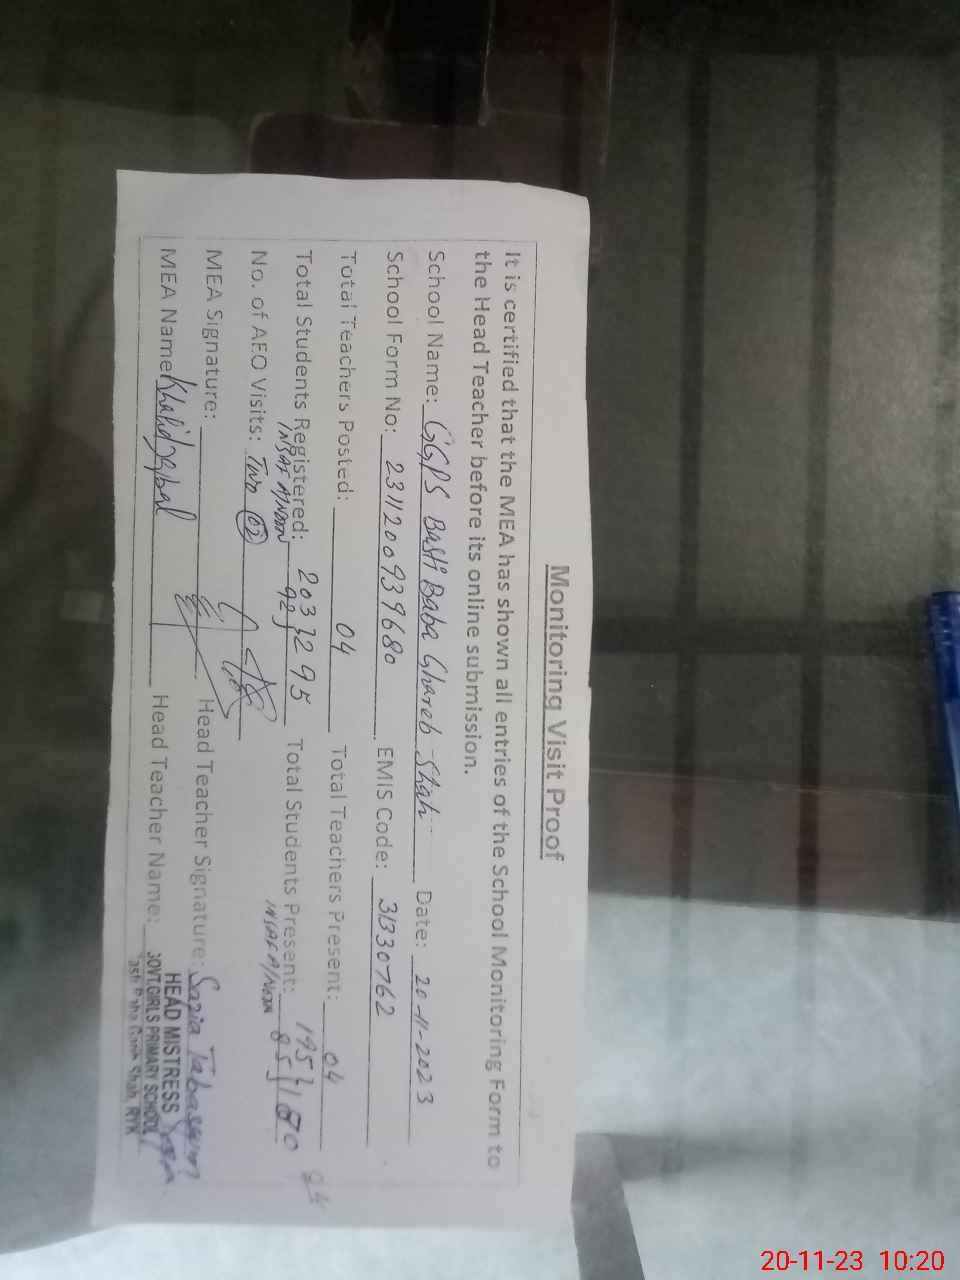 Monitoring Visit Proof
It is certified that the MEA has shown all entries of the School Monitoring Form to
the Head Teacher before its online submission.
School Name: GGPS Basti Baba Ghareb Shah Date: 20-11-2023
School Form No: 2311200939680 EMIS Code: 31330762
Total Teachers Posted: 04 Total Teachers Present: 04
Total Students Registered: 203 } 295 Total Students Present: 195 } 
INSAF A/Noon 92 INSAF A/Noon 85
No. of AEO Visits: Two 02
MEA Signature: Head Teacher Signature: Sazia Tabassum
MEA Name: Khalid Iqbal Head Teacher Name:
HEAD MISTRESS
GOVT.GIRLS PRIMARY SCHOOL
Baba Garib Shah, RYK
20-11-23 10:20